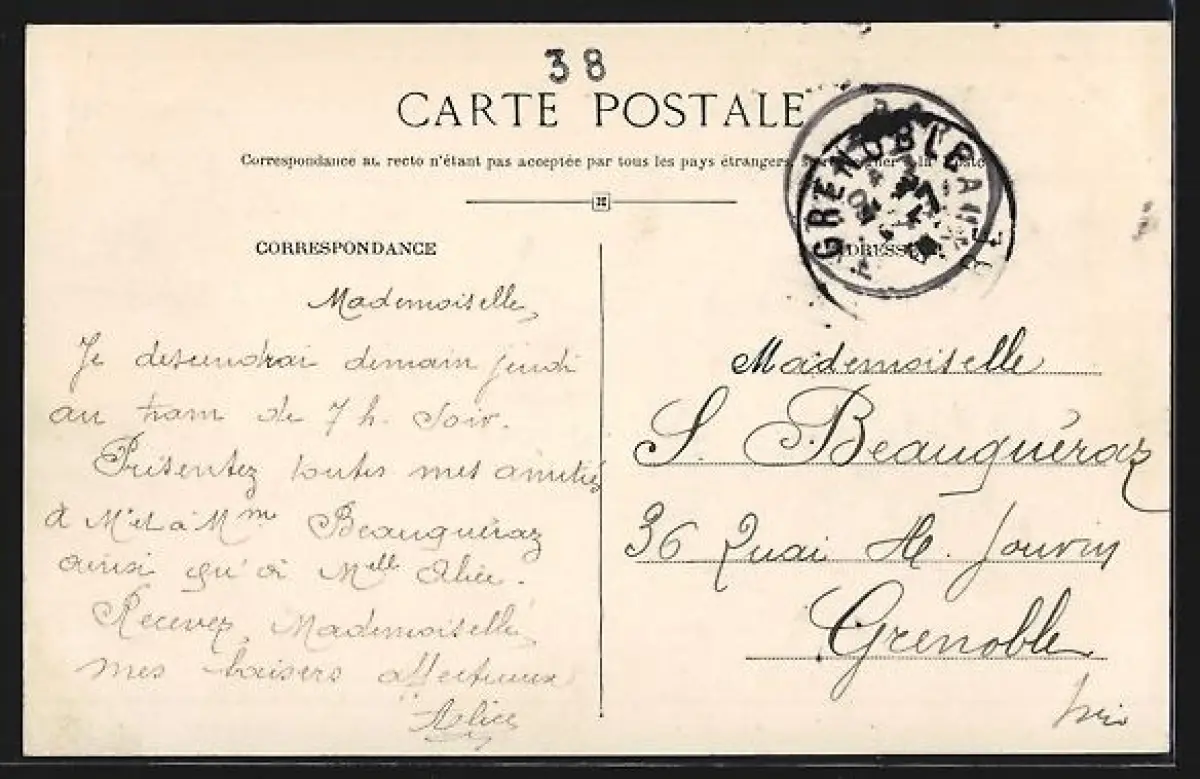 38
CARTE POSTALE
Correspondance au recto n'étant pas acceptée par tous les pays étrangers, la Poste
CORRESPONDANCE
Mademoiselle,
Je descendrai demain jeudi
au tram de 7 h. soir.
Présentez toutes mes amitiés
à Mr et à Mme Beauguéraz
ainsi qu'à Melle Alice.
Recevez, Mademoiselle,
mes baisers affectueux
Alice
GRENOBLE
ADRESSE
Mademoiselle
S. Beauguéraz
36 Quai H. Jouvin
Grenoble